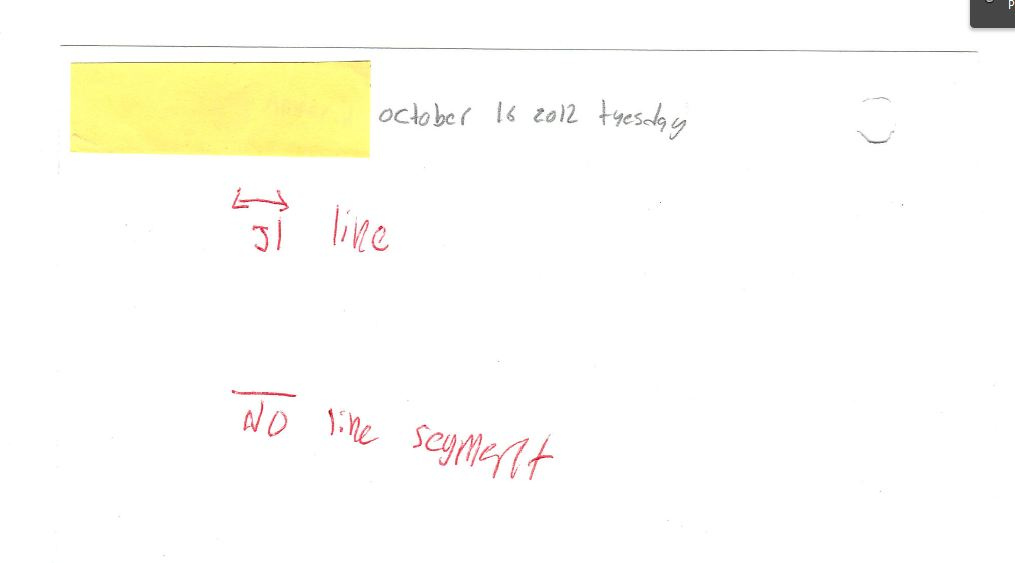 october 16 2012 tuesday
JI line
NO line segment